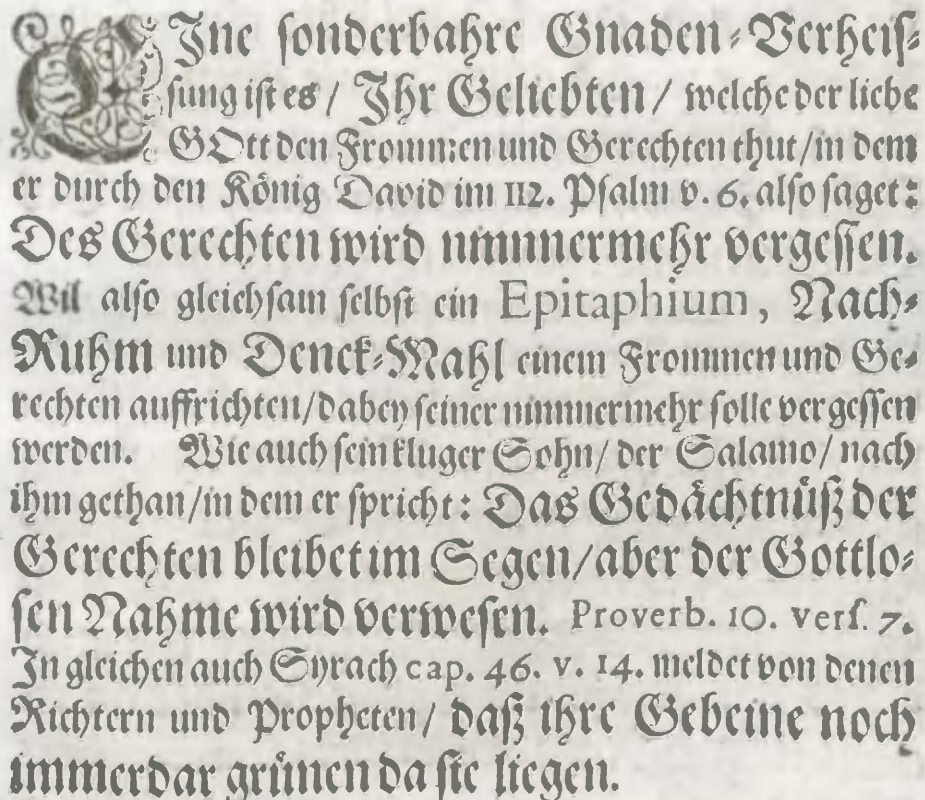 EJne sonderbahre Gnaden-Verheis-
sung ist es / Jhr Geliebten / welche der liebe
GOtt den Frommen und Gerechten thut / in dem
er durch den König David im 112. Psalm v. 6. also saget:
Des Gerechten wird nimmermehr vergessen.
Wil also gleichsam selbst ein Epitaphium, Nach-
Ruhm und Denck-Mahl einem Frommen und Ge-
rechten auffrichten / dabey seiner nimmermehr solle vergessen
werden. Wie auch sein kluger Sohn / der Salamo / nach
ihm gethan / in dem er spricht: Das Gedächtnüß der
Gerechten bleibet im Segen / aber der Gottlo-
sen Nahme wird verwesen. Proverb. 10. vers. 7.
Jn gleichen auch Syrach cap. 46. v. 14. meldet von denen
Richtern und Propheten / daß ihre Gebeine noch
immerdar grünen da sie liegen.